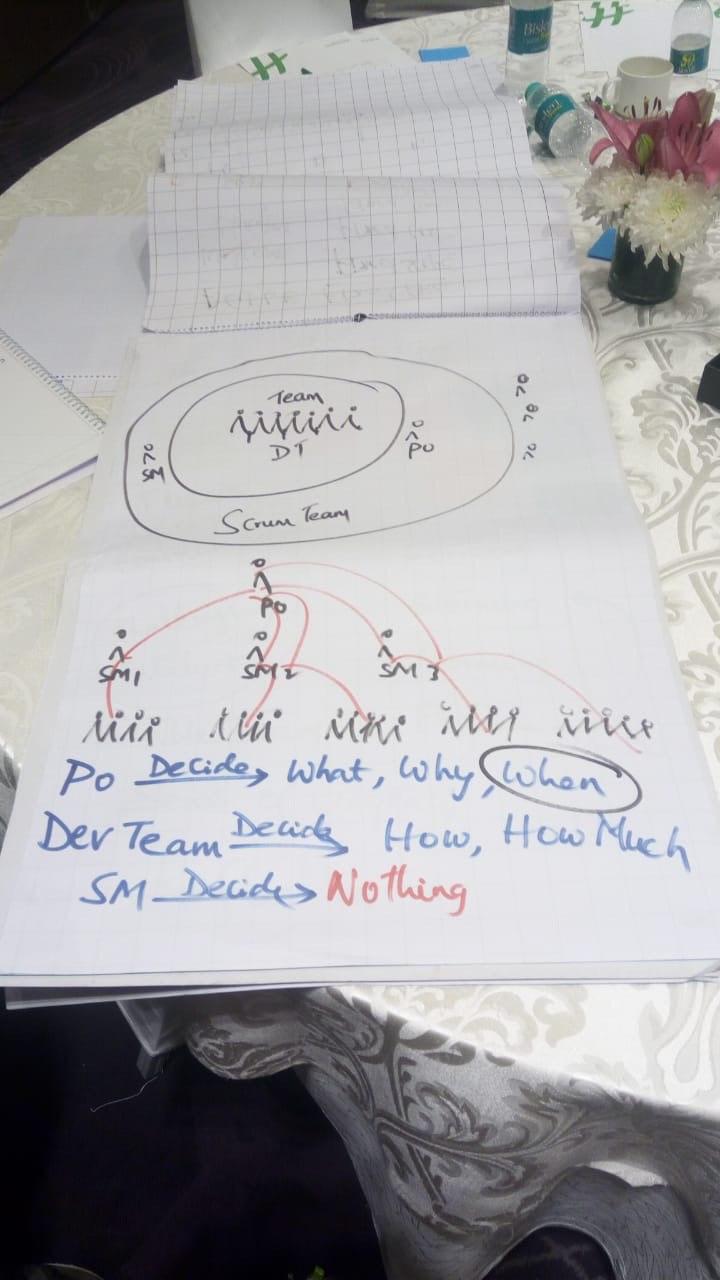 Team
DT
SM
PO
Scrum Team
PO
SM1
SM2
SM3
PO Decide What, Why, When
Dev Team Decide How, How Much
SM Decide Nothing